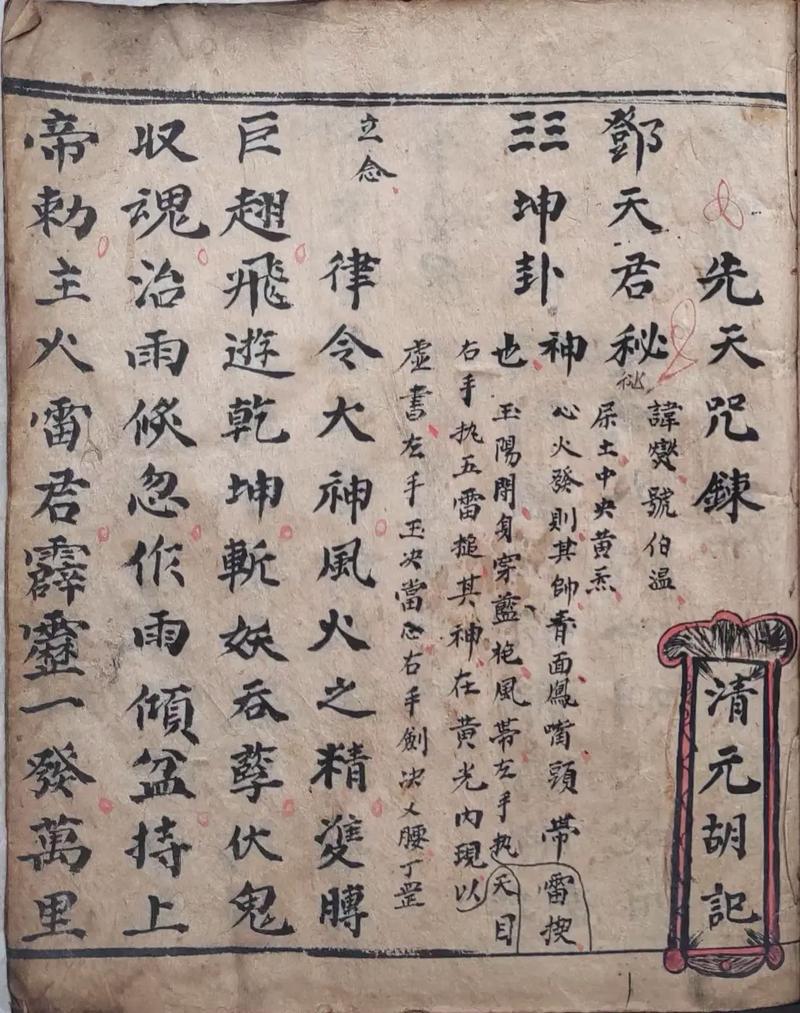 先天咒鍊
清元胡記
鄧天君秘
諱燮號伯温
屎土中央黃炁
坤卦神
心火發則其帥青面鳳嘴頭帶雷揳
也
玉陽開身穿藍袍風帶左手执天目
右手执五雷搥其神在黃光内現以
虛書左手玉决當心右手劍决乂腰丁罡
立念
律令大神風火之精雙膊
巨翅飛遊乾坤斬妖吞孽伏鬼
収魂治雨倐忽作雨傾盆持上
帝勅主火雷君霹靈一發萬里